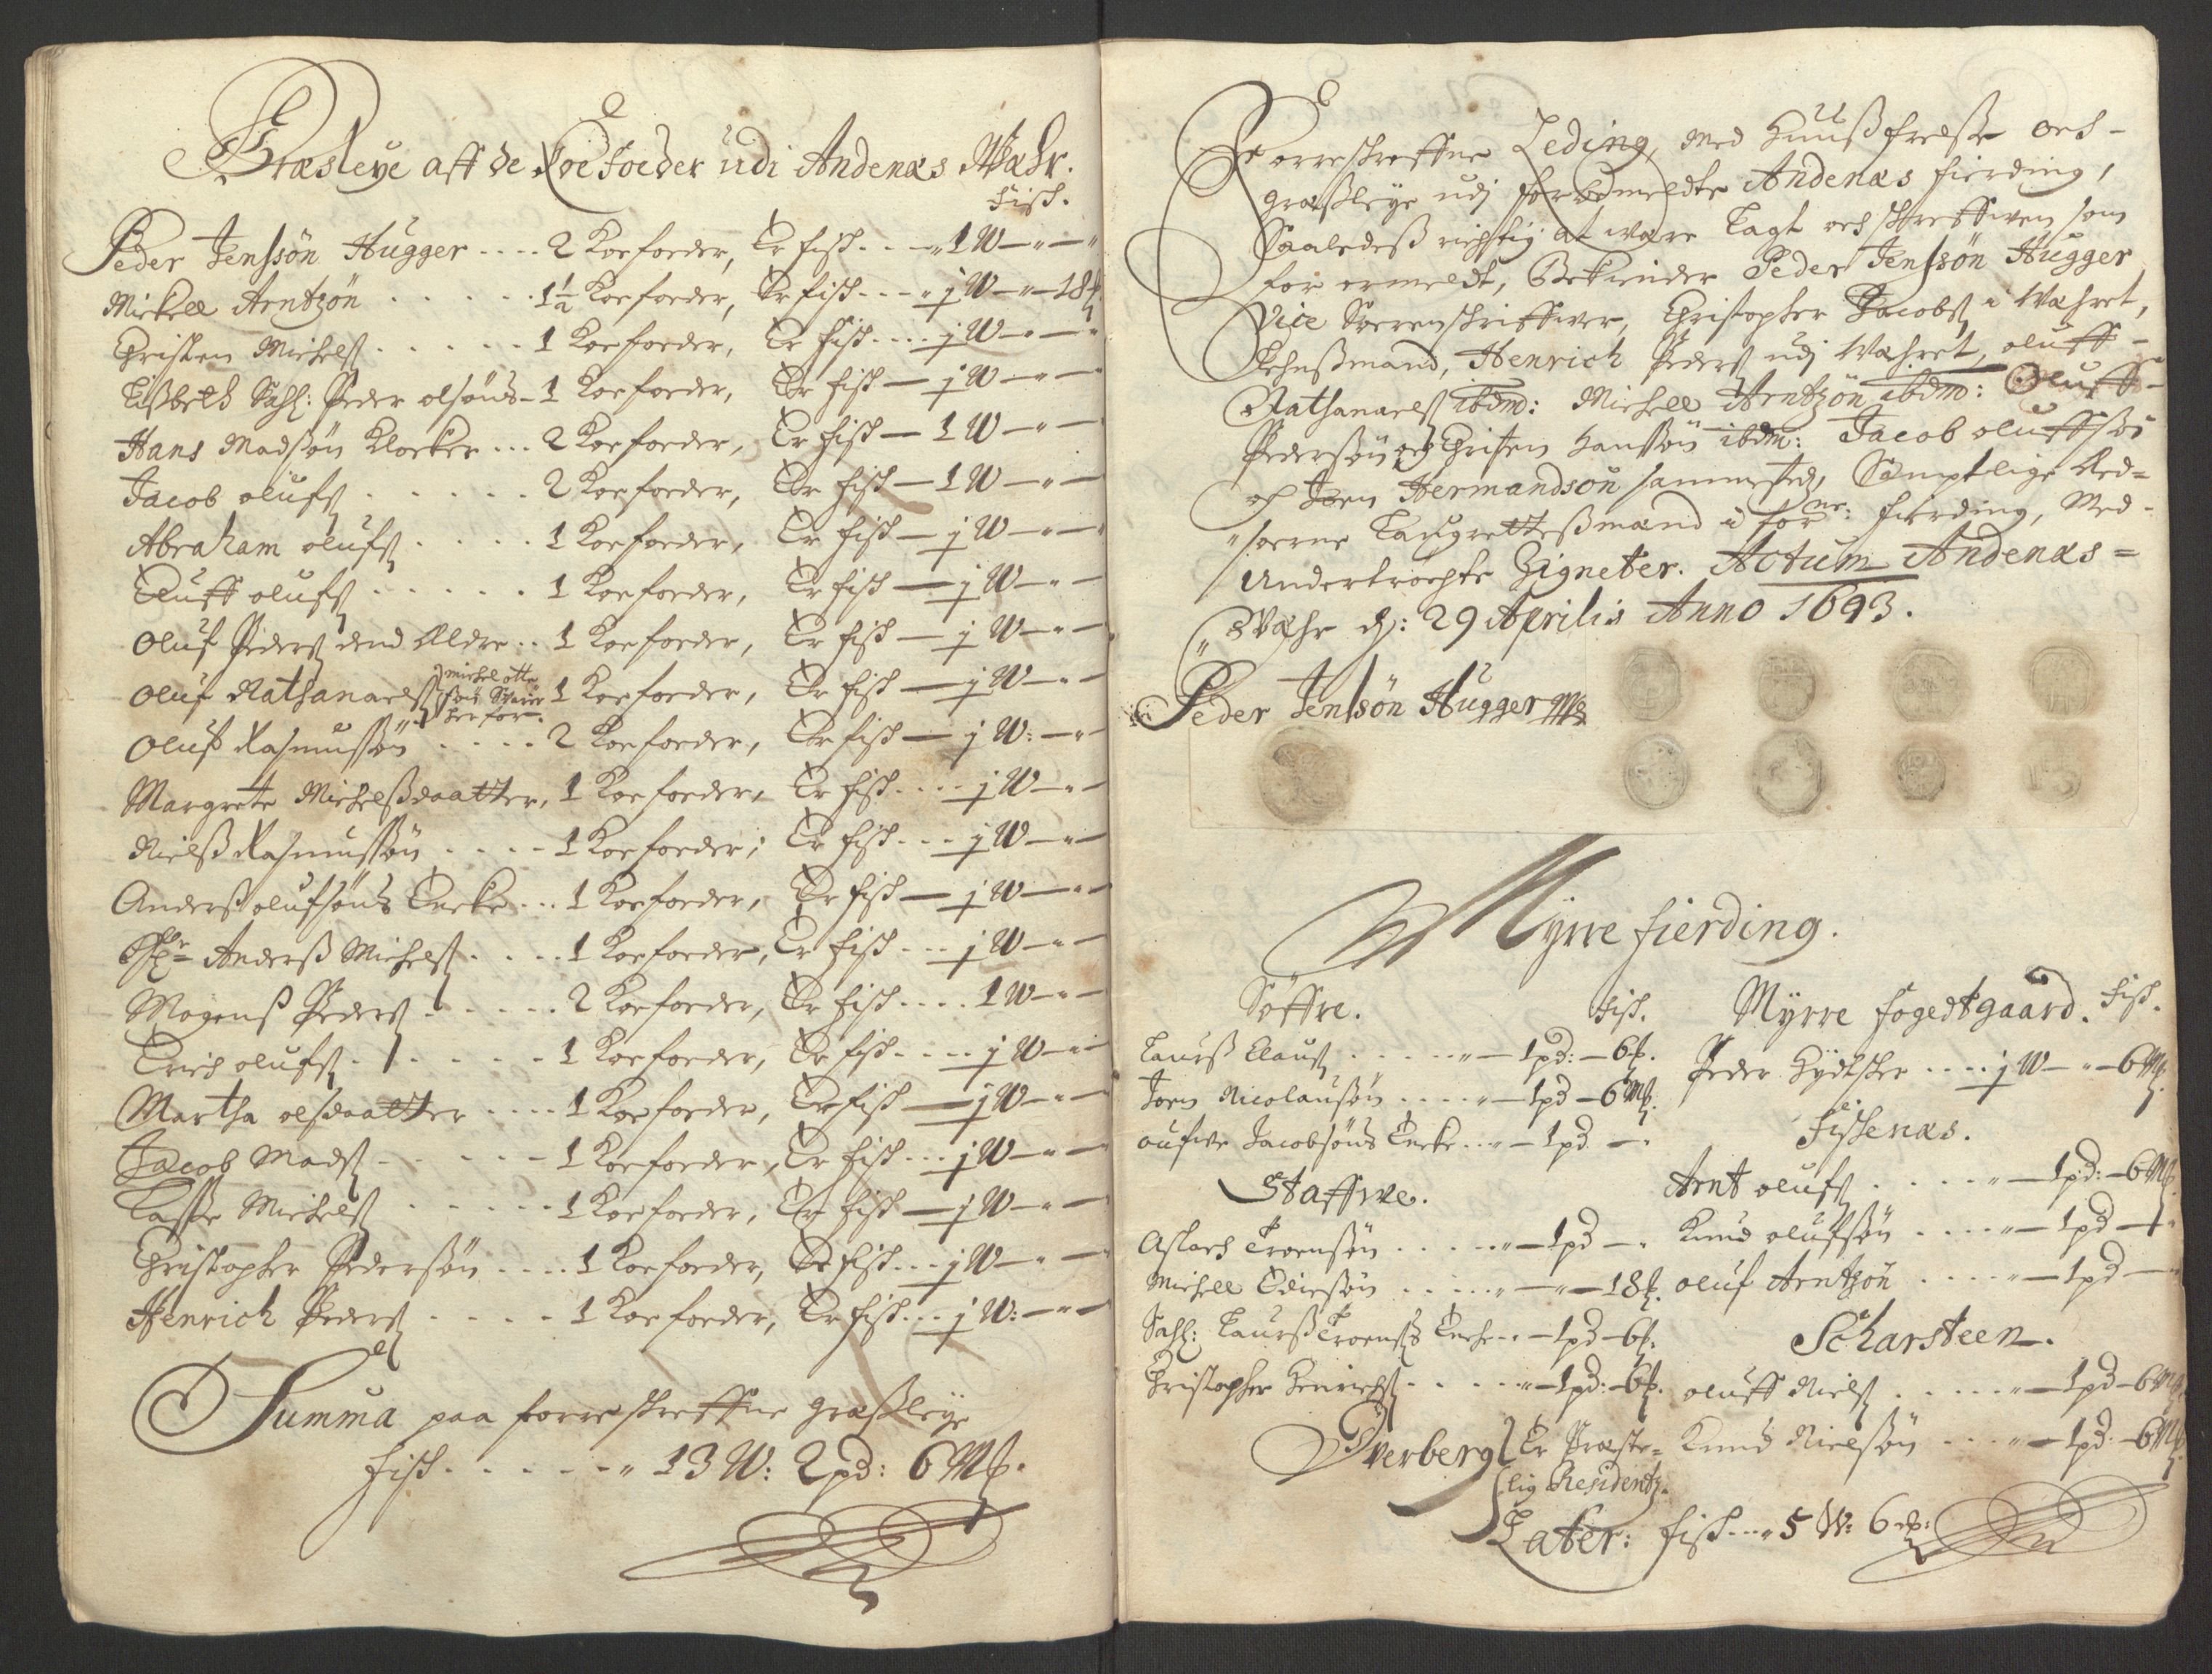 Græsleye aff de Koe Foeder udi Andenæs Wæhr.
Fisch.
Peder Jenssön Hugger .... 2 Koe foeder, Er fisch - - - „ 1 W — „ — „
Mickell Arntzön . . . . . 1½ Koe foeder, Er fisch - - - „ j W — „ — 18 ℔
Christen Michelß . . . . . 1 Koe foeder, Er fisch .... j W — „ —
Lißbeth Sahl: Peder olsöns - 1 Koe foeder, Er fisch — j W — „ —
Hans Madssön Klocker ... 2 Koe foeder, Er fisch — 1 W — „ —
Jacob olufß . . . . . . 2 Koe foeder, Er fisch — 1 W — „ —
Abraham olufß . . . . 1 Koe foeder, Er fisch — j W — „ —
Eluff olufß . . . . . . 1 Koe foeder, Er fisch — j W — „ —
Oluf Pederß dend Eldre .. 1 Koe foeder, Er fisch — j W — „ —
Oluf Nathanaelß michel otte
sön
her for. 1 Koe foeder, Er fisch — j W — „ —
Oluf Rasmussön . . . . 2 Koe foeder, Er fisch — j W: — „
Margrete Michelßdaatter, 1 Koe foeder, Er fisch .... j W — „ —
Nielß Rasmussön . . . . 1 Koe foeder; Er fisch ... j W — „ —
Anderß olufsöns Encke ... 1 Koe foeder, Er fisch — j W — „ —
Anderß Michelß . . . . 1 Koe foeder, Er fisch ... j W — „ —
Mogenß Pederß . . . . . 2 Koe foeder, Er fisch .... 1 W — „ —
Erich olufß . . . . . . 1 Koe foeder, Er fisch .... j W — „ —
Martha olsdaatter .... 1 Koe foeder, Er fisch — j W — „ —
Jacob Madß . . . . . 1 Koe foeder, Er fisch ... j W — „ —
Lasse Michelß . . . . . 1 Koe foeder, Er fisch — j W — „ —
Christopher Pederssön .... 1 Koe foeder, Er fisch ... j W — „ —
Henrich Pederß . . . . 1 Koe foeder, Er fisch ... j W: — „ —
Summa paa forreskreffne græßleye
fisch . . . . . . „ 13 W: 2 pd: 6 M℔.
Forreskreffne Leding, med Huußfrelse och -
græßleye udj forbemeldte Andenæs fierding,
Saaledeß richtig at være Lagt och skreffwen som
for ermeldt, Bekiender Peder Jenssön Hugger
Vice Sorenschriffwer, Christopher Jacobß i Wæhret,
Lehnßmand, Henrich Pederß udj Wæhret, oluff -
Nathanaelß ibdm: Michell Arntzön ibdm: Oluff -
Pederssön och Christen Hanssön ibdm: Jacob oluffsön
och Joen Hermandsön sammested, Samptlige Ed=
soerne Laugrettesmænd i forne: fierding, Med -
Undertrychte Signeter. Actum Andenæs =
Wæhr dj: 29 Aprilis Anno 1693.
Peder Jenssön Hugger
Myrre fierding.
Söffre. Fisch.
Laurß Clauß . . . . . „ — 1 pd: — 6 ℔.
Joen Nicolausön .... „ — 1 pd — 6 M℔.
oufwe Jacobsöns Encke ... „ — 1 pd —
Staffwe.
Aslach Troenssön . . . . „ — 1 pd — .
Michell Edissön ..... „ — „ — 18 ℔.
Sahl: Laurß Troenß Encke ... — 1 pd — 6 ℔.
Christopher Henrichß . . . . . „ — 1 pd: — 6 ℔.
Overberg Er Præste=
lig Residentz.
Myrre fogedtgaard. Fisch.
Peder Hydscher .... j W — „ — 6 M℔.
Fissenæs.
Arnt olufß . . . . „ — 1 pd: — 6 M℔.
Knud olufssön . . . . „ — 1 pd —
oluf Arntzön . . . . „ — 1 pd —
Scharsteen.
oluff Nielß . . . . . „ — 1 pd — 6 M℔
Knud Nielssön . . . „ — 1 pd — 6 M℔
Later: fisch ... „ 5 W: 6 ℔: